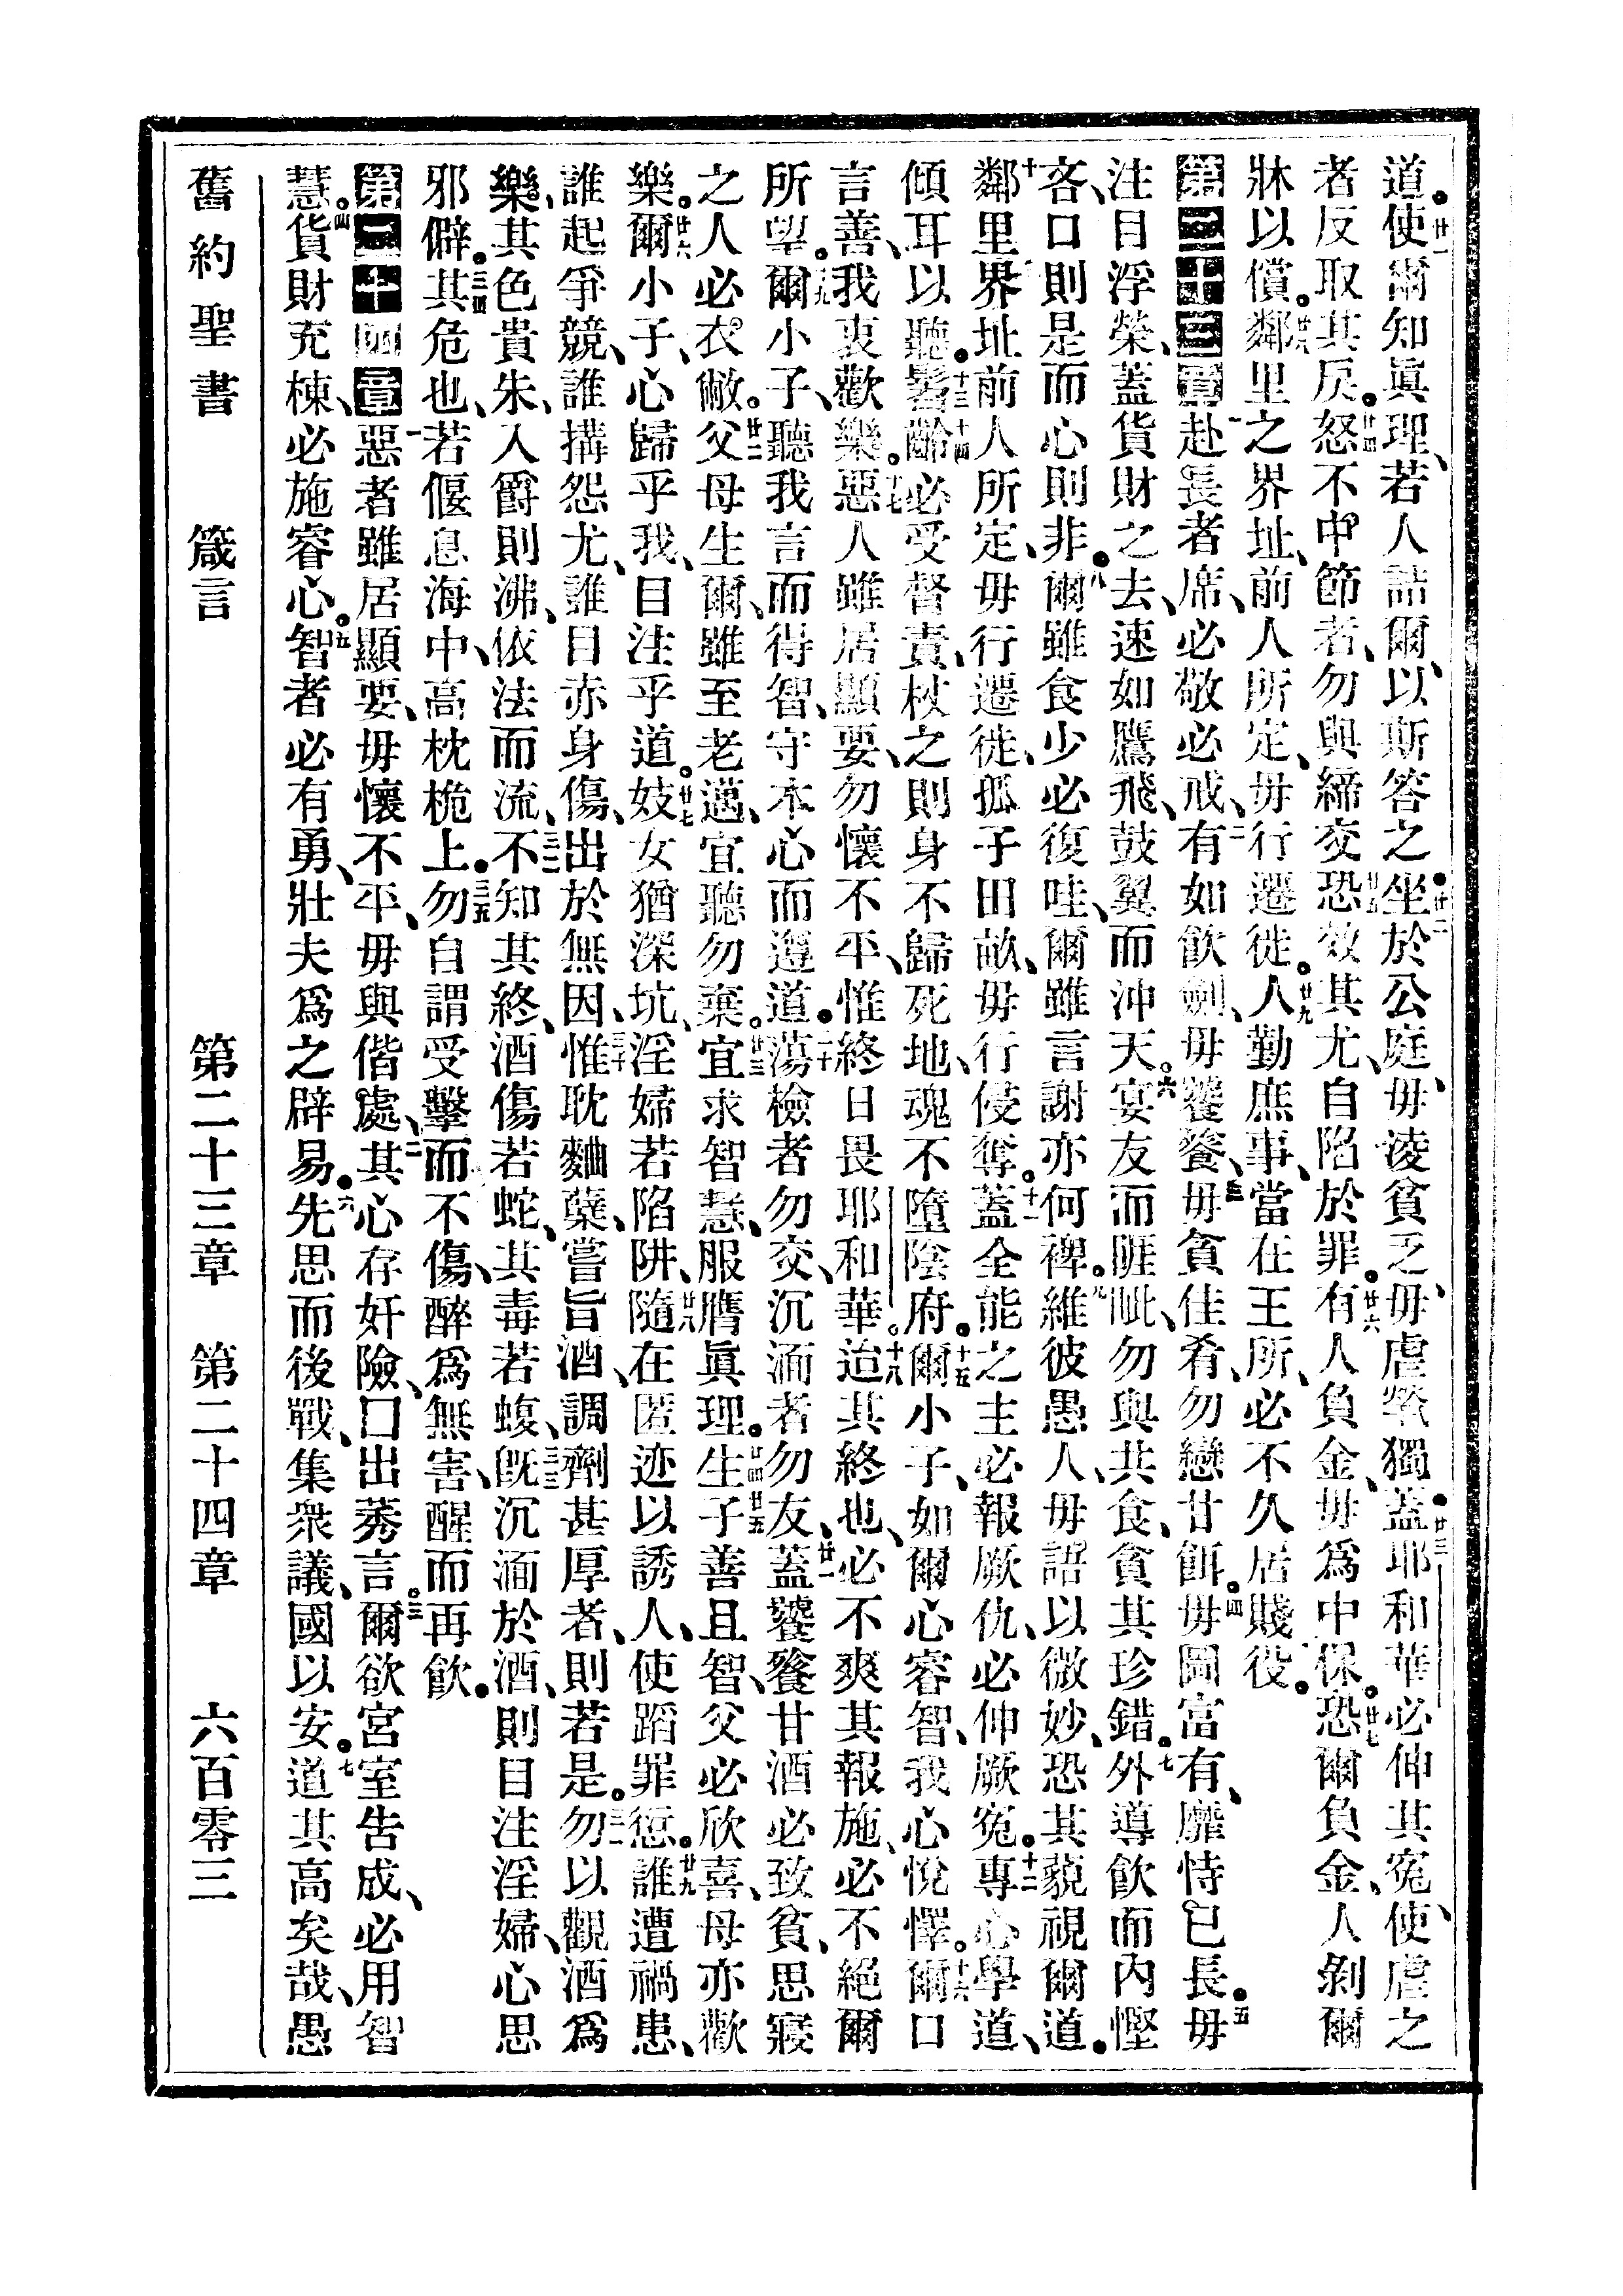 道。廿一使爾知眞理、若人詰爾、以斯答之。廿二坐於公庭、毋淩貧乏、毋虐煢獨。廿三蓋耶和華必伸其寃、使虐之
者反取其戾。廿四怒不中節者、勿與締交、廿五恐效其尤、自陷於罪。廿六有人負金、毋爲中保。廿七恐爾負金、人剝爾
牀以償。廿八鄰里之界址、前人所定、毋行遷徙。廿九人勤庶事、當在王所、必不久居賤役。
第二十三章一赴長者席、必敬必戒、二有如飲劍、毋饕餮、三毋貪佳肴、勿戀甘餌。四毋圖富有、靡恃已長。五毋
注目浮榮、蓋貨財之去、速如鷹飛、鼓翼而沖天。六宴友而睚眦、勿與共食、貪其珍錯。七外導飲而內慳
吝、口則是而心則非。八爾雖食少必復哇、爾雖言謝亦何裨。九維彼愚人、毋語以微妙、恐其藐視爾道。
十鄰里界址前人所定、毋行遷徙、孤子田畝、毋行侵奪。十一蓋全能之主必報厥仇、必伸厥寃。十二專心學道、
傾耳以聽。十三髫齡十四必受督責、杖之則身不歸死地、魂不墮陰府。十五爾小子、如爾心睿智、我心悅懌。十六爾口
言善、我衷歡樂。十七惡人雖居顯要、勿懷不平、惟終日畏耶和華。十八迨其終也、必不爽其報施、必不絕爾
所望。十九爾小子、聽我言而得智、守本心而遵道。二十蕩檢者勿交、沉湎者勿友、廿一蓋饕餮甘酒必致貧、思寢
之人必衣敝。廿二父母生爾、雖至老邁、宜聽勿棄。廿三宜求智慧、服膺眞理。廿四生廿五子善且智、父必欣喜、母亦歡
樂。廿六爾小子、心歸乎我、目注乎道。廿七妓女猶深坑、淫婦若陷阱、廿八隨在匿迹以誘人、使蹈罪愆。廿九誰遭禍患、
誰起爭競、誰搆怨尤、誰目赤身傷、出於無因、三十惟耽麯櫱、嘗旨酒、調劑甚厚者、則若是。三一勿以觀酒爲
樂、其色貴朱、入爵則沸、依法而流、三二不知其終、酒傷若蛇、其毒若蝮、三三旣沉湎於酒、則目注淫婦、心思
邪僻。三四其危也、若偃息海中、高枕桅上。三五勿自謂受擊而不傷、醉爲無害、醒而再飲。
第二十四章一惡者雖居顯要、毋懷不平、毋與偕處、二其心存奸險、口出莠言。三爾欲宮室告成、必用智
慧。四貨財充棟、必施睿心。五智者必有勇、壯夫爲之辟易。六先思而後戰、集衆議、國以安。七道其高矣哉、愚
舊約聖書 箴言 第二十三章 第二十四章 六百零三